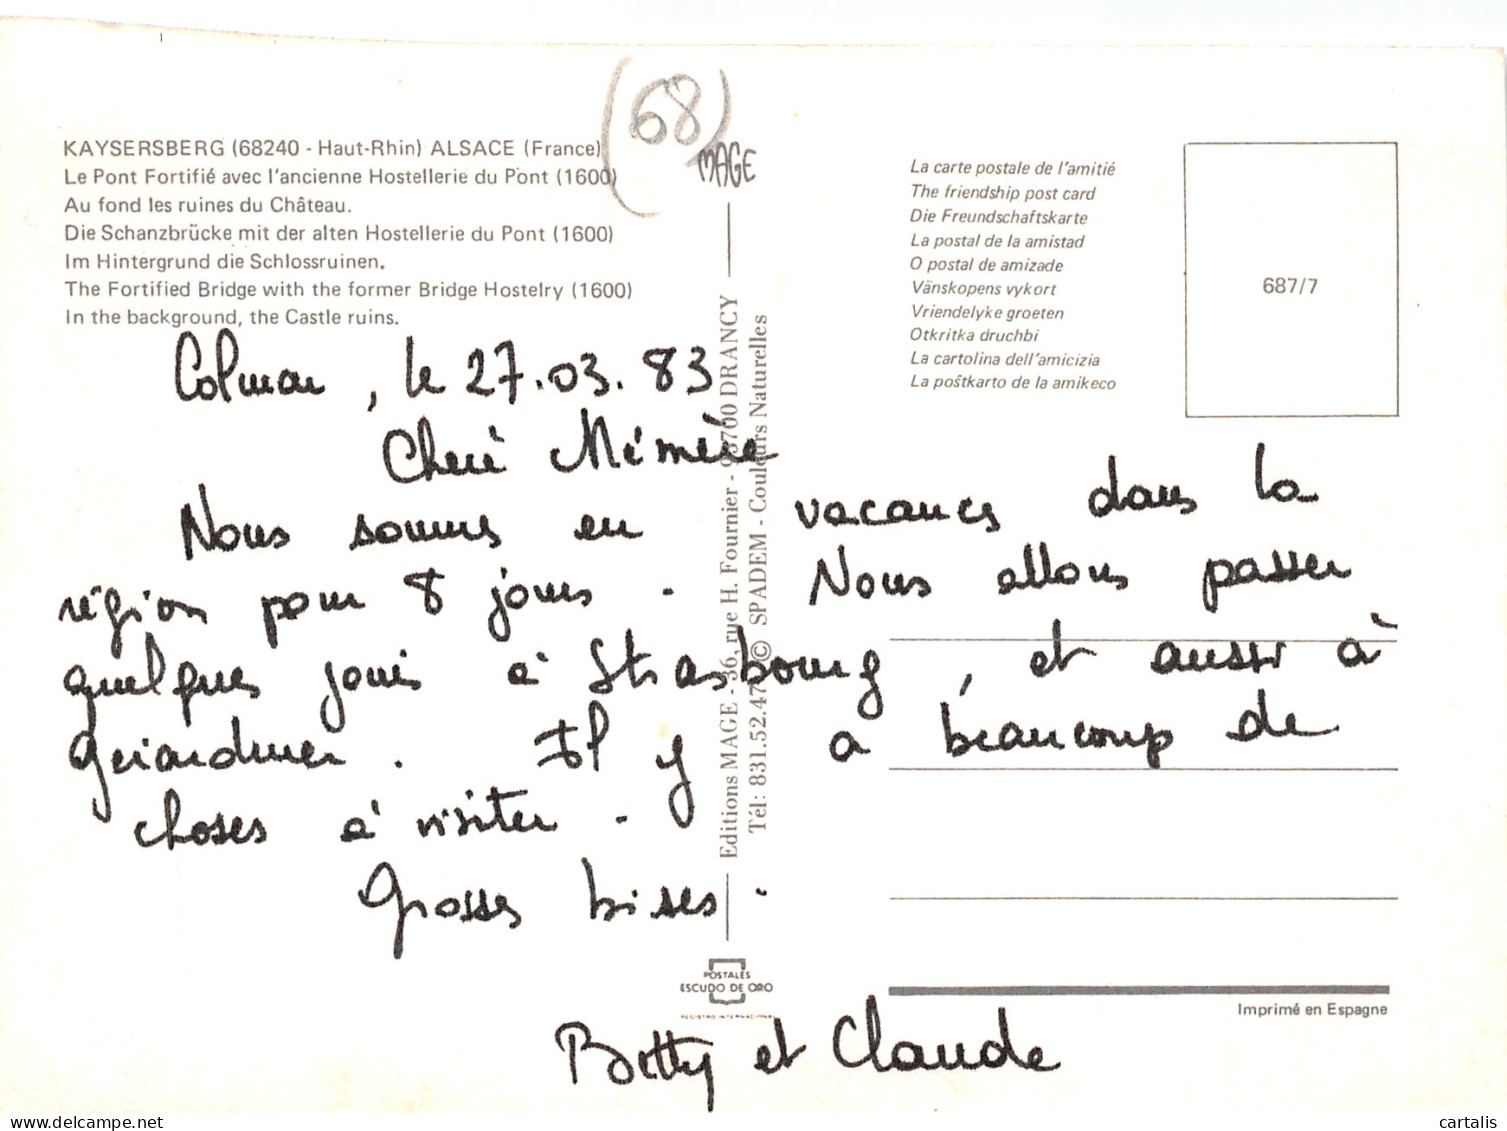 (68)
KAYSERSBERG (68240 - Haut-Rhin) ALSACE (France)
Le Pont Fortifié avec l'ancienne Hostellerie du Pont (1600)
Au fond les ruines du Château.
Die Schanzbrücke mit der alten Hostellerie du Pont (1600)
Im Hintergrund die Schlossruinen.
The Fortified Bridge with the former Bridge Hostelry (1600)
In the background, the Castle ruins.
MAGE
La carte postale de l'amitié
The friendship post card
Die Freundschaftskarte
La postal de la amistad
O postal de amizade
Vänskopens vykort
Vriendelyke groeten
Otkritka druchbi
La cartolina dell'amicizia
La poŝtkarto de la amikeco
687/7
Colmar, le 27.03.83
Cheré Mémère
Nous sommes en vacances dans la
région pour 8 jours. Nous allons passer
quelques jours à Strasbourg, et aussi à
Gérardmer. Il y a beaucoup de
choses à visiter.
Grosses bises.
Betty et Claude
Editions MAGE - 36, rue H. Fournier - 93700 DRANCY
Tél: 831.52.47 © SPADEM - Couleurs Naturelles
POSTALES
ESCUDO DE ORO
REGISTRO INTERNACIONAL
Imprimé en Espagne
www.delcampe.net
cartalis